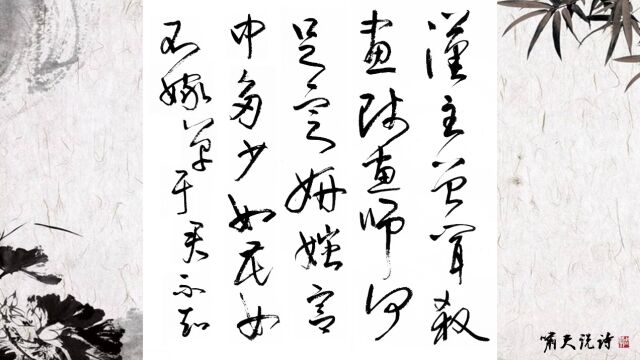 漢主曾闻殺
畫師畫師何
足定妍媸宫
中多少如花女
不嫁单于君不知
嘯天说诗